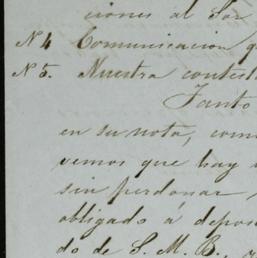 ciones al Sor
Nº 4 Comunicacion q
Nº 5. Nuestra contest
Tanto
en su nota, como
vemos que hay
sin perdonar
obligado á depos
do de S. M. B., q